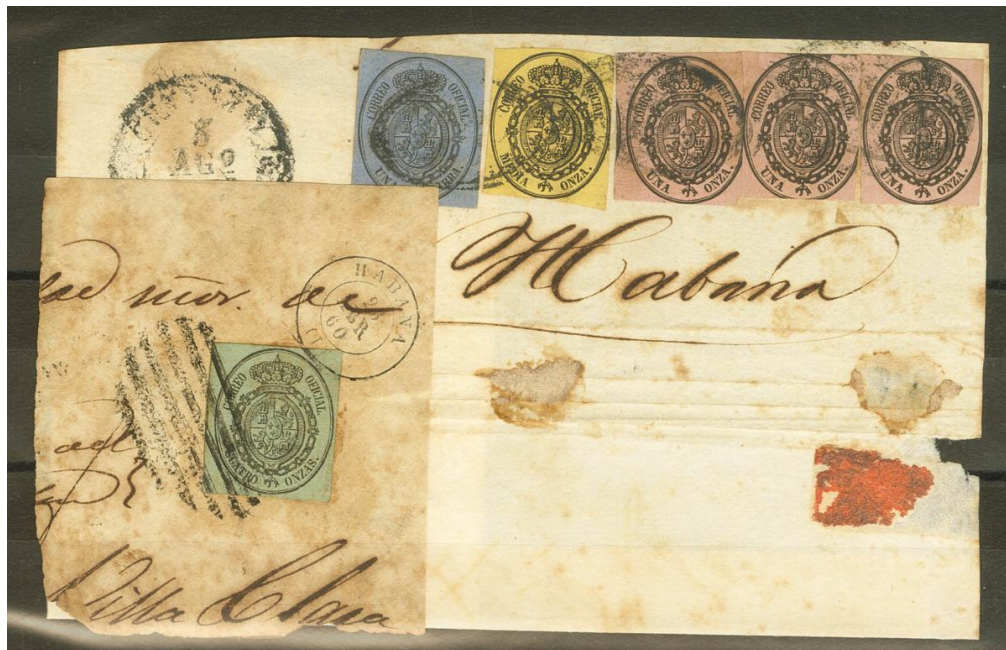 CORREO OFICIAL. UNA LIBRA
CORREO OFICIAL. MEDIA ONZA.
CORREO OFICIAL. UNA ONZA.
CORREO OFICIAL. UNA ONZA.
CORREO OFICIAL. UNA ONZA.
AGO
Habana
HABANA
60
de
CORREO OFICIAL. CUATRO ONZAS.
Villa Clara